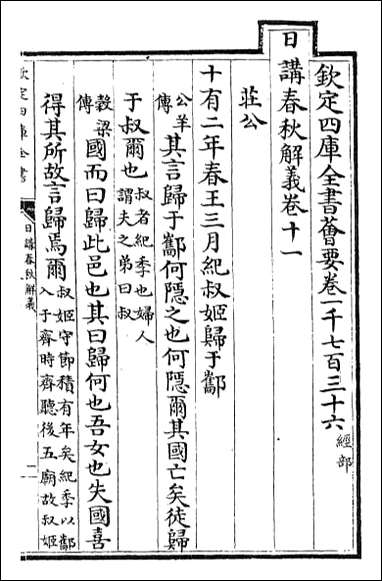 欽定四庫全書薈要卷一千七百三十六 經部
日講春秋解義卷十一
莊公
十有二年春王三月紀叔姬歸于酅
公羊傳 其言歸于酅何隱之也何隱爾其國亡矣徒歸
于叔爾也 叔者紀季也婦人謂夫之弟曰叔
穀梁傳 國而曰歸此邑也其曰歸何也吾女也失國喜
得其所故言歸焉爾 叔姬守節積有年矣紀季以酅入于齊時齊聽後五廟故叔姬
欽定四庫全書
日講春秋解義
一